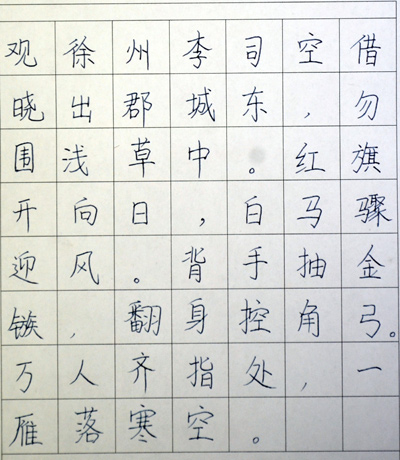 观徐州李司空借
晓出郡城东,勿
围浅草中。红旗
开向日,白马骤
迎风。背手抽金
镞,翻身控角弓。
万人齐指处,一
雁落寒空。